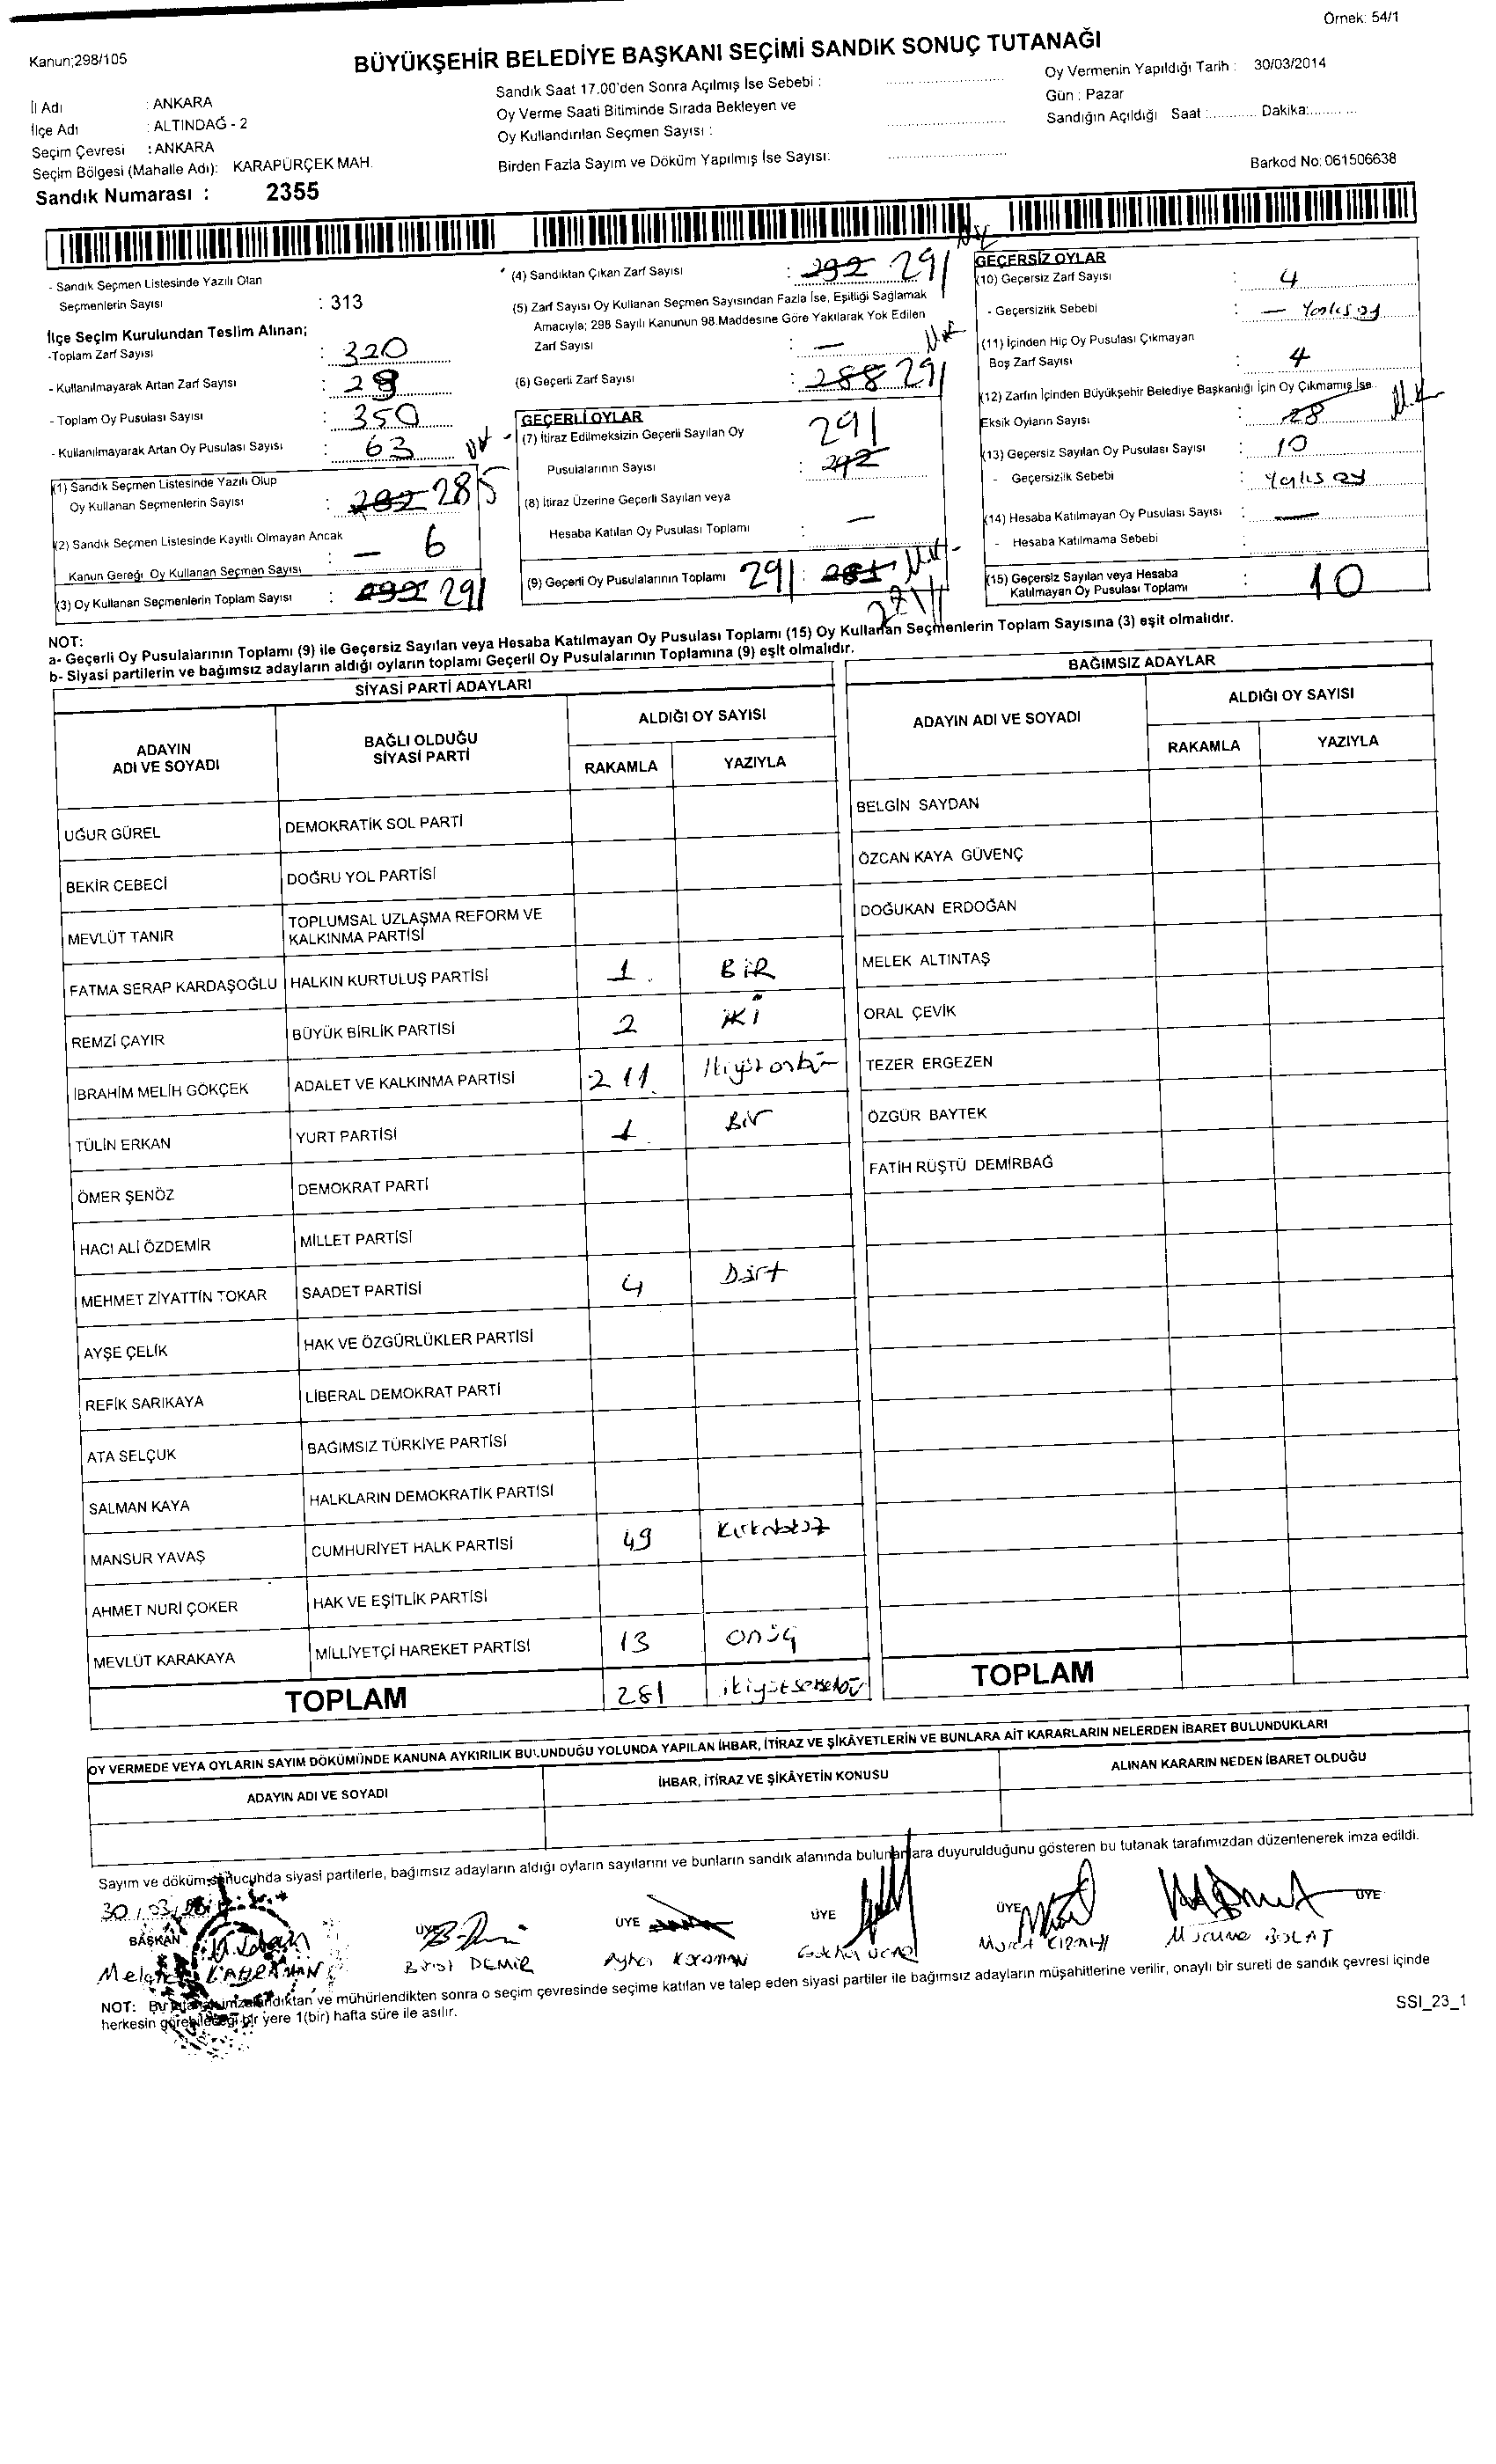 Örnek: 54/1
Kanun;298/105
BÜYÜKŞEHİR BELEDİYE BAŞKANI SEÇİMİ SANDIK SONUÇ TUTANAĞI
İl Adı : ANKARA
İlçe Adı : ALTINDAĞ - 2
Seçim Çevresi : ANKARA
Seçim Bölgesi (Mahalle Adı): KARAPÜRÇEK MAH.
Sandık Numarası : 2355
Sandık Saat 17.00'den Sonra Açılmış İse Sebebi :
Oy Verme Saati Bitiminde Sırada Bekleyen ve
Oy Kullandırılan Seçmen Sayısı :
Birden Fazla Sayım ve Döküm Yapılmış İse Sayısı:
Oy Vermenin Yapıldığı Tarih : 30/03/2014
Gün : Pazar
Sandığın Açıldığı Saat :............ Dakika:............
Barkod No: 061506638
- Sandık Seçmen Listesinde Yazılı Olan
Seçmenlerin Sayısı : 313
İlçe Seçim Kurulundan Teslim Alınan;
-Toplam Zarf Sayısı : 320
- Kullanılmayarak Artan Zarf Sayısı : 28
- Toplam Oy Pusulası Sayısı : 350
- Kullanılmayarak Artan Oy Pusulası Sayısı : 63
(1) Sandık Seçmen Listesinde Yazılı Olup
Oy Kullanan Seçmenlerin Sayısı : 285
(2) Sandık Seçmen Listesinde Kayıtlı Olmayan Ancak
Kanun Gereği Oy Kullanan Seçmen Sayısı : — 6
(3) Oy Kullanan Seçmenlerin Toplam Sayısı : 291
(4) Sandıktan Çıkan Zarf Sayısı : 292 291
(5) Zarf Sayısı Oy Kullanan Seçmen Sayısından Fazla İse, Eşitliği Sağlamak
Amacıyla; 298 Sayılı Kanunun 98.Maddesine Göre Yakılarak Yok Edilen
Zarf Sayısı : —
(6) Geçerli Zarf Sayısı : 288 291
GEÇERLİ OYLAR
(7) İtiraz Edilmeksizin Geçerli Sayılan Oy 291
Pusulalarının Sayısı : 292
(8) İtiraz Üzerine Geçerli Sayılan veya
Hesaba Katılan Oy Pusulası Toplamı : —
(9) Geçerli Oy Pusulalarının Toplamı 291 : 281
GEÇERSİZ OYLAR
(10) Geçersiz Zarf Sayısı : 4
- Geçersizlik Sebebi : — Yanlış oy
(11) İçinden Hiç Oy Pusulası Çıkmayan
Boş Zarf Sayısı : 4
(12) Zarfın İçinden Büyükşehir Belediye Başkanlığı İçin Oy Çıkmamış İse
Eksik Oyların Sayısı : 28
(13) Geçersiz Sayılan Oy Pusulası Sayısı : 10
- Geçersizlik Sebebi : Yanlıs oy
(14) Hesaba Katılmayan Oy Pusulası Sayısı : —
- Hesaba Katılmama Sebebi :
(15) Geçersiz Sayılan veya Hesaba
Katılmayan Oy Pusulası Toplamı : 10
NOT:
a- Geçerli Oy Pusulalarının Toplamı (9) ile Geçersiz Sayılan veya Hesaba Katılmayan Oy Pusulası Toplamı (15) Oy Kullanan Seçmenlerin Toplam Sayısına (3) eşit olmalıdır.
b- Siyasi partilerin ve bağımsız adayların aldığı oyların toplamı Geçerli Oy Pusulalarının Toplamına (9) eşit olmalıdır.
SİYASİ PARTİ ADAYLARI
ADAYIN ADI VE SOYADI
BAĞLI OLDUĞU SİYASİ PARTİ
ALDIĞI OY SAYISI
RAKAMLA YAZIYLA
UĞUR GÜREL DEMOKRATİK SOL PARTİ
BEKİR CEBECİ DOĞRU YOL PARTİSİ
MEVLÜT TANIR TOPLUMSAL UZLAŞMA REFORM VE
KALKINMA PARTİSİ
FATMA SERAP KARDAŞOĞLU HALKIN KURTULUŞ PARTİSİ 1 BİR
REMZİ ÇAYIR BÜYÜK BİRLİK PARTİSİ 2 İKİ
İBRAHİM MELİH GÖKÇEK ADALET VE KALKINMA PARTİSİ 211 İkiyüz onbir
TÜLİN ERKAN YURT PARTİSİ 1 Bir
ÖMER ŞENÖZ DEMOKRAT PARTİ
HACI ALİ ÖZDEMİR MİLLET PARTİSİ
MEHMET ZİYATTİN TOKAR SAADET PARTİSİ 4 Dört
AYŞE ÇELİK HAK VE ÖZGÜRLÜKLER PARTİSİ
REFİK SARIKAYA LİBERAL DEMOKRAT PARTİ
ATA SELÇUK BAĞIMSIZ TÜRKİYE PARTİSİ
SALMAN KAYA HALKLARIN DEMOKRATİK PARTİSİ
MANSUR YAVAŞ CUMHURİYET HALK PARTİSİ 49 Kırkdokuz
AHMET NURİ ÇOKER HAK VE EŞİTLİK PARTİSİ
MEVLÜT KARAKAYA MİLLİYETÇİ HAREKET PARTİSİ 13 onüç
TOPLAM 281 ikiyüzseksenbir
BAĞIMSIZ ADAYLAR
ADAYIN ADI VE SOYADI
ALDIĞI OY SAYISI
RAKAMLA YAZIYLA
BELGİN SAYDAN
ÖZCAN KAYA GÜVENÇ
DOĞUKAN ERDOĞAN
MELEK ALTINTAŞ
ORAL ÇEVİK
TEZER ERGEZEN
ÖZGÜR BAYTEK
FATİH RÜŞTÜ DEMİRBAĞ
TOPLAM
OY VERMEDE VEYA OYLARIN SAYIM DÖKÜMÜNDE KANUNA AYKIRILIK BULUNDUĞU YOLUNDA YAPILAN İHBAR, İTİRAZ VE ŞİKÂYETLERİN VE BUNLARA AİT KARARLARIN NELERDEN İBARET BULUNDUKLARI
ADAYIN ADI VE SOYADI İHBAR, İTİRAZ VE ŞİKÂYETİN KONUSU ALINAN KARARIN NEDEN İBARET OLDUĞU
Sayım ve döküm sonucunda siyasi partilerle, bağımsız adayların aldığı oyların sayılarını ve bunların sandık alanında bulunanlara duyurulduğunu gösteren bu tutanak tarafımızdan düzenlenerek imza edildi.
30/03/2014
BAŞKAN ÜYE ÜYE ÜYE ÜYE ÜYE
KAHRAMAN DEMİR Ayhan Gökhan UÇAR Murat BOLAT
NOT: Bu tutanak imzalandıktan ve mühürlendikten sonra o seçim çevresinde seçime katılan ve talep eden siyasi partiler ile bağımsız adayların müşahitlerine verilir, onaylı bir sureti de sandık çevresi içinde
herkesin görebileceği bir yere 1(bir) hafta süre ile asılır.
SSI_23_1